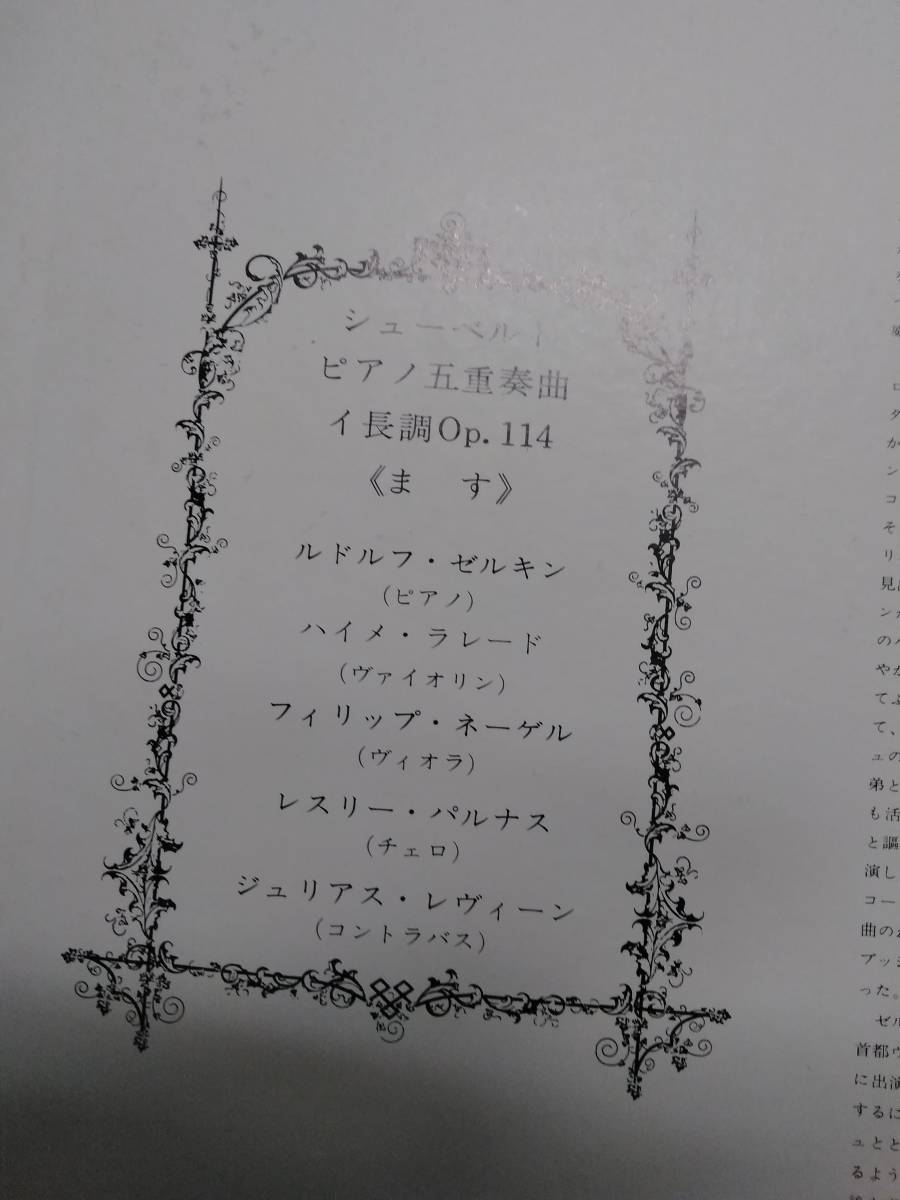 シューベルト
ピアノ五重奏曲
イ長調Op.114
《ま す》
ルドルフ・ゼルキン
(ピアノ)
ハイメ・ラレード
(ヴァイオリン)
フィリップ・ネーゲル
(ヴィオラ)
レスリー・パルナス
(チェロ)
ジュリアス・レヴィーン
(コントラバス)
か
ン
コ
そ
リ
見
ン
の
やか
て
て、
ュの
弟と
も活
と謳
演し
コー
曲の
ブッ
った。
ゼル
首都ウ
に出演
するに
ュとと
るよう